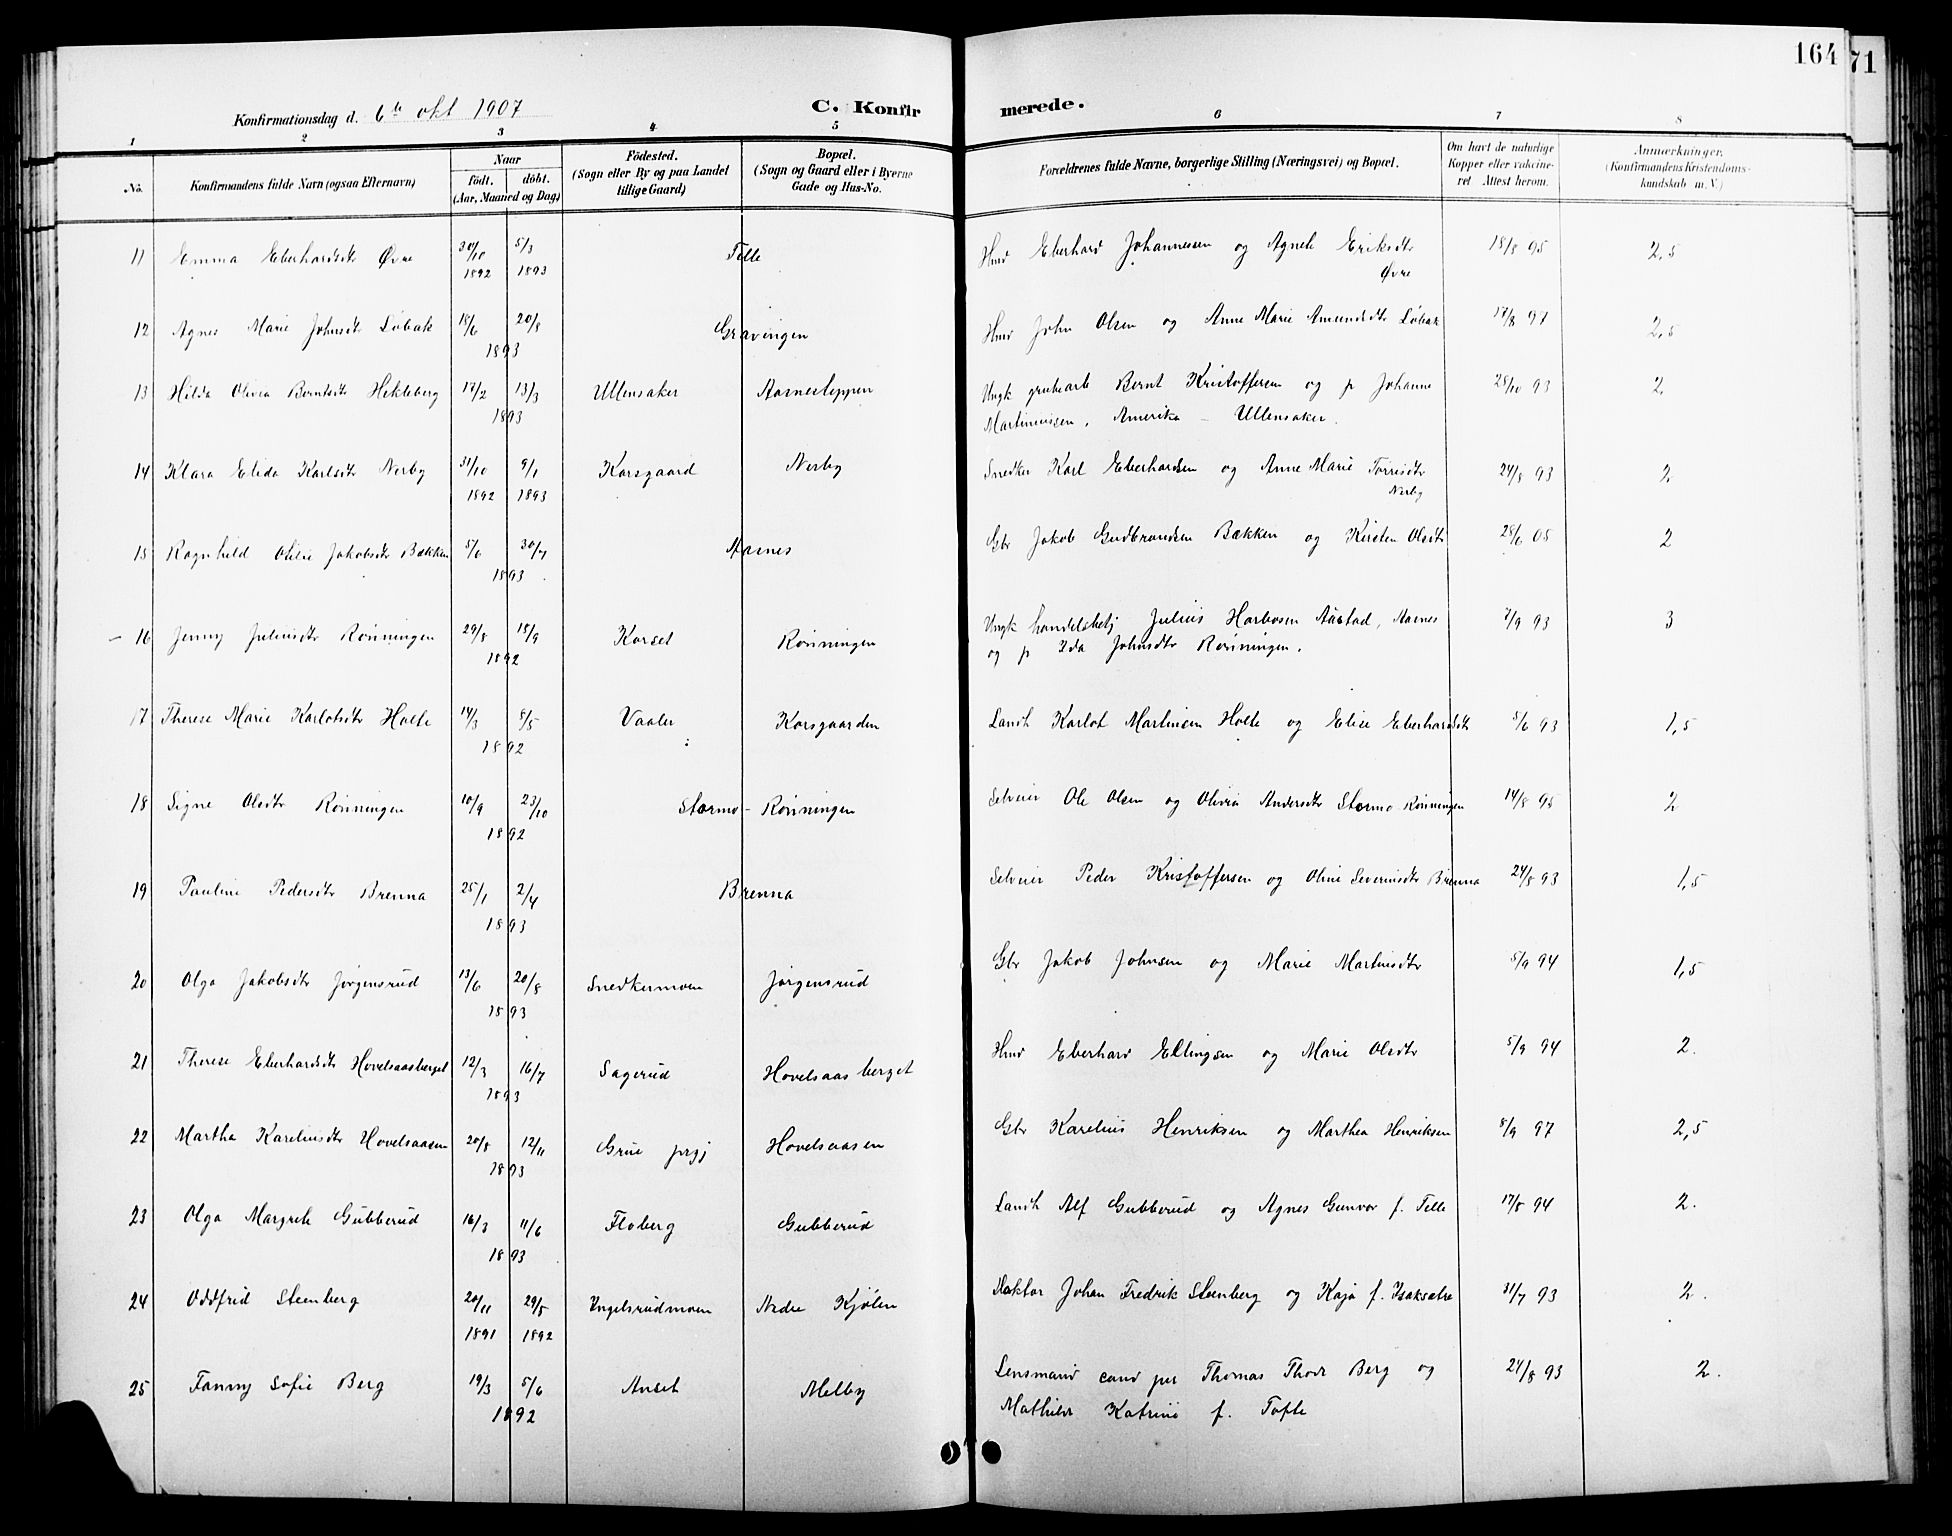 164
71
Konfirmationsdag d. 6te okt 1907
C. Konfirmerede.
1 2 3 4 5 6 7 8
No. Konfirmandens fulde Navn (ogsaa Efternavn) Naar födt. döbt. (Aar, Maaned og Dag) Födested. (Sogn eller By og paa Landet tillige Gaard) Bopæl. (Sogn og Gaard eller i Byerne Gade og Hus-No. Forældrenes fulde Navne, borgerlige Stilling (Næringsvei) og Bopæl. Om havt de naturlige Kopper eller vaccineret Attest herom. Anmærkninger. (Konfirmandens Kristendomskundskab m. V.)
11 Emma Eberhardsdtr Øvre 30/10 1892 5/3 1893 Telle Hmd Eberhard Johannessen og Agnete Eriksdtr Øvre 18/8 95 2,5
12 Agnes Marie Johnsdtr Løbak 18/6 20/8 1893 Gravingen Hmd John Olsen og Anne Marie Amundsdtr Løbak 17/8 97 2,5
13 Hilda Olivia Berntsdtr Hekleberg 17/2 13/3 1893 Ullensaker Aarnesteppen Ungk grubearb Bernt Kristoffersen og p Johanne
Martiniussen, Amerika – Ullensaker. 28/10 93 2.
14 Klara Elida Karlsdtr Nerby 31/10 1892 9/1 1893 Korsgaard Nerby Snedker Karl Eberhardsen og Anne Marie Torrisdtr Nerby 24/8 93 2
15 Ragnhild Otilie Jakobsdtr Bækken 5/6 30/7 1893 Aarnes Gbr Jakob Gudbrandsen Bækken og Kirsten Olsdtr 28/6 05 2
16 Jenny Juliusdtr Rønningen 29/8 18/9 1892 Korset Rønningen Ungk handelsbetj Julius Harbosen Austad, Aarnes
og p Ida Johnsdtr Rønningen. 7/9 93 3
17 Therese Marie Karlotsdtr Holte 14/3 8/5 1892 Vaaler Korsgaarden Landh Karlot Martinsen Holte og Elise Eberhardsdtr 5/6 93 1,5
18 Signe Olsdtr Rønningen 10/9 23/10 1892 Stormo-Rønningen Selveier Ole Olsen og Olivia Andersdtr Stormo Rønningen 14/8 95 2
19 Pauline Pedersdtr Brenna 25/1 2/4 1893 Brenna Selveier Peder Kristoffersen og Oline Severinsdtr Brenna 24/8 93 1,5
20 Olga Jakobsdtr Jørgensrud 13/6 20/8 1893 Snedkermoen Jørgensrud Gbr Jakob Johnsen og Marie Martinsdtr 5/9 94 1,5
21 Therese Eberhardsdtr Hovelsaasberget 12/3 16/7 1893 Sagerud Hovelsaasberget Hmd Eberhard Ellingsen og Marie Olsdtr 5/9 94 2.
22 Martha Kareliusdtr Hovelsaasen 20/8 12/11 1893 Grue prgj Hovelsaasen Gbr Karelius Henriksen og Marthea Henriksen 8/9 97 2,5
23 Olga Margrete Gubberud 16/3 11/6 1893 Floberg Gubberud Landh Alf Gubberud og Agnes Gunvor f. Telle 17/8 94 2.
24 Oddfrid Steenberg 20/11 1891 29/5 1892 Ungelsrudmoen Nedre Kjølen Doktor Johan Fredrik Steenberg og Kaja f. Isaksætre 31/7 93 2.
25 Fanny Sofie Berg 19/3 5/6 1892 Anset Melby Lensmand cand per Thomas Thode Berg og
Mathilde Katrine f. Tofte 24/8 93 2.